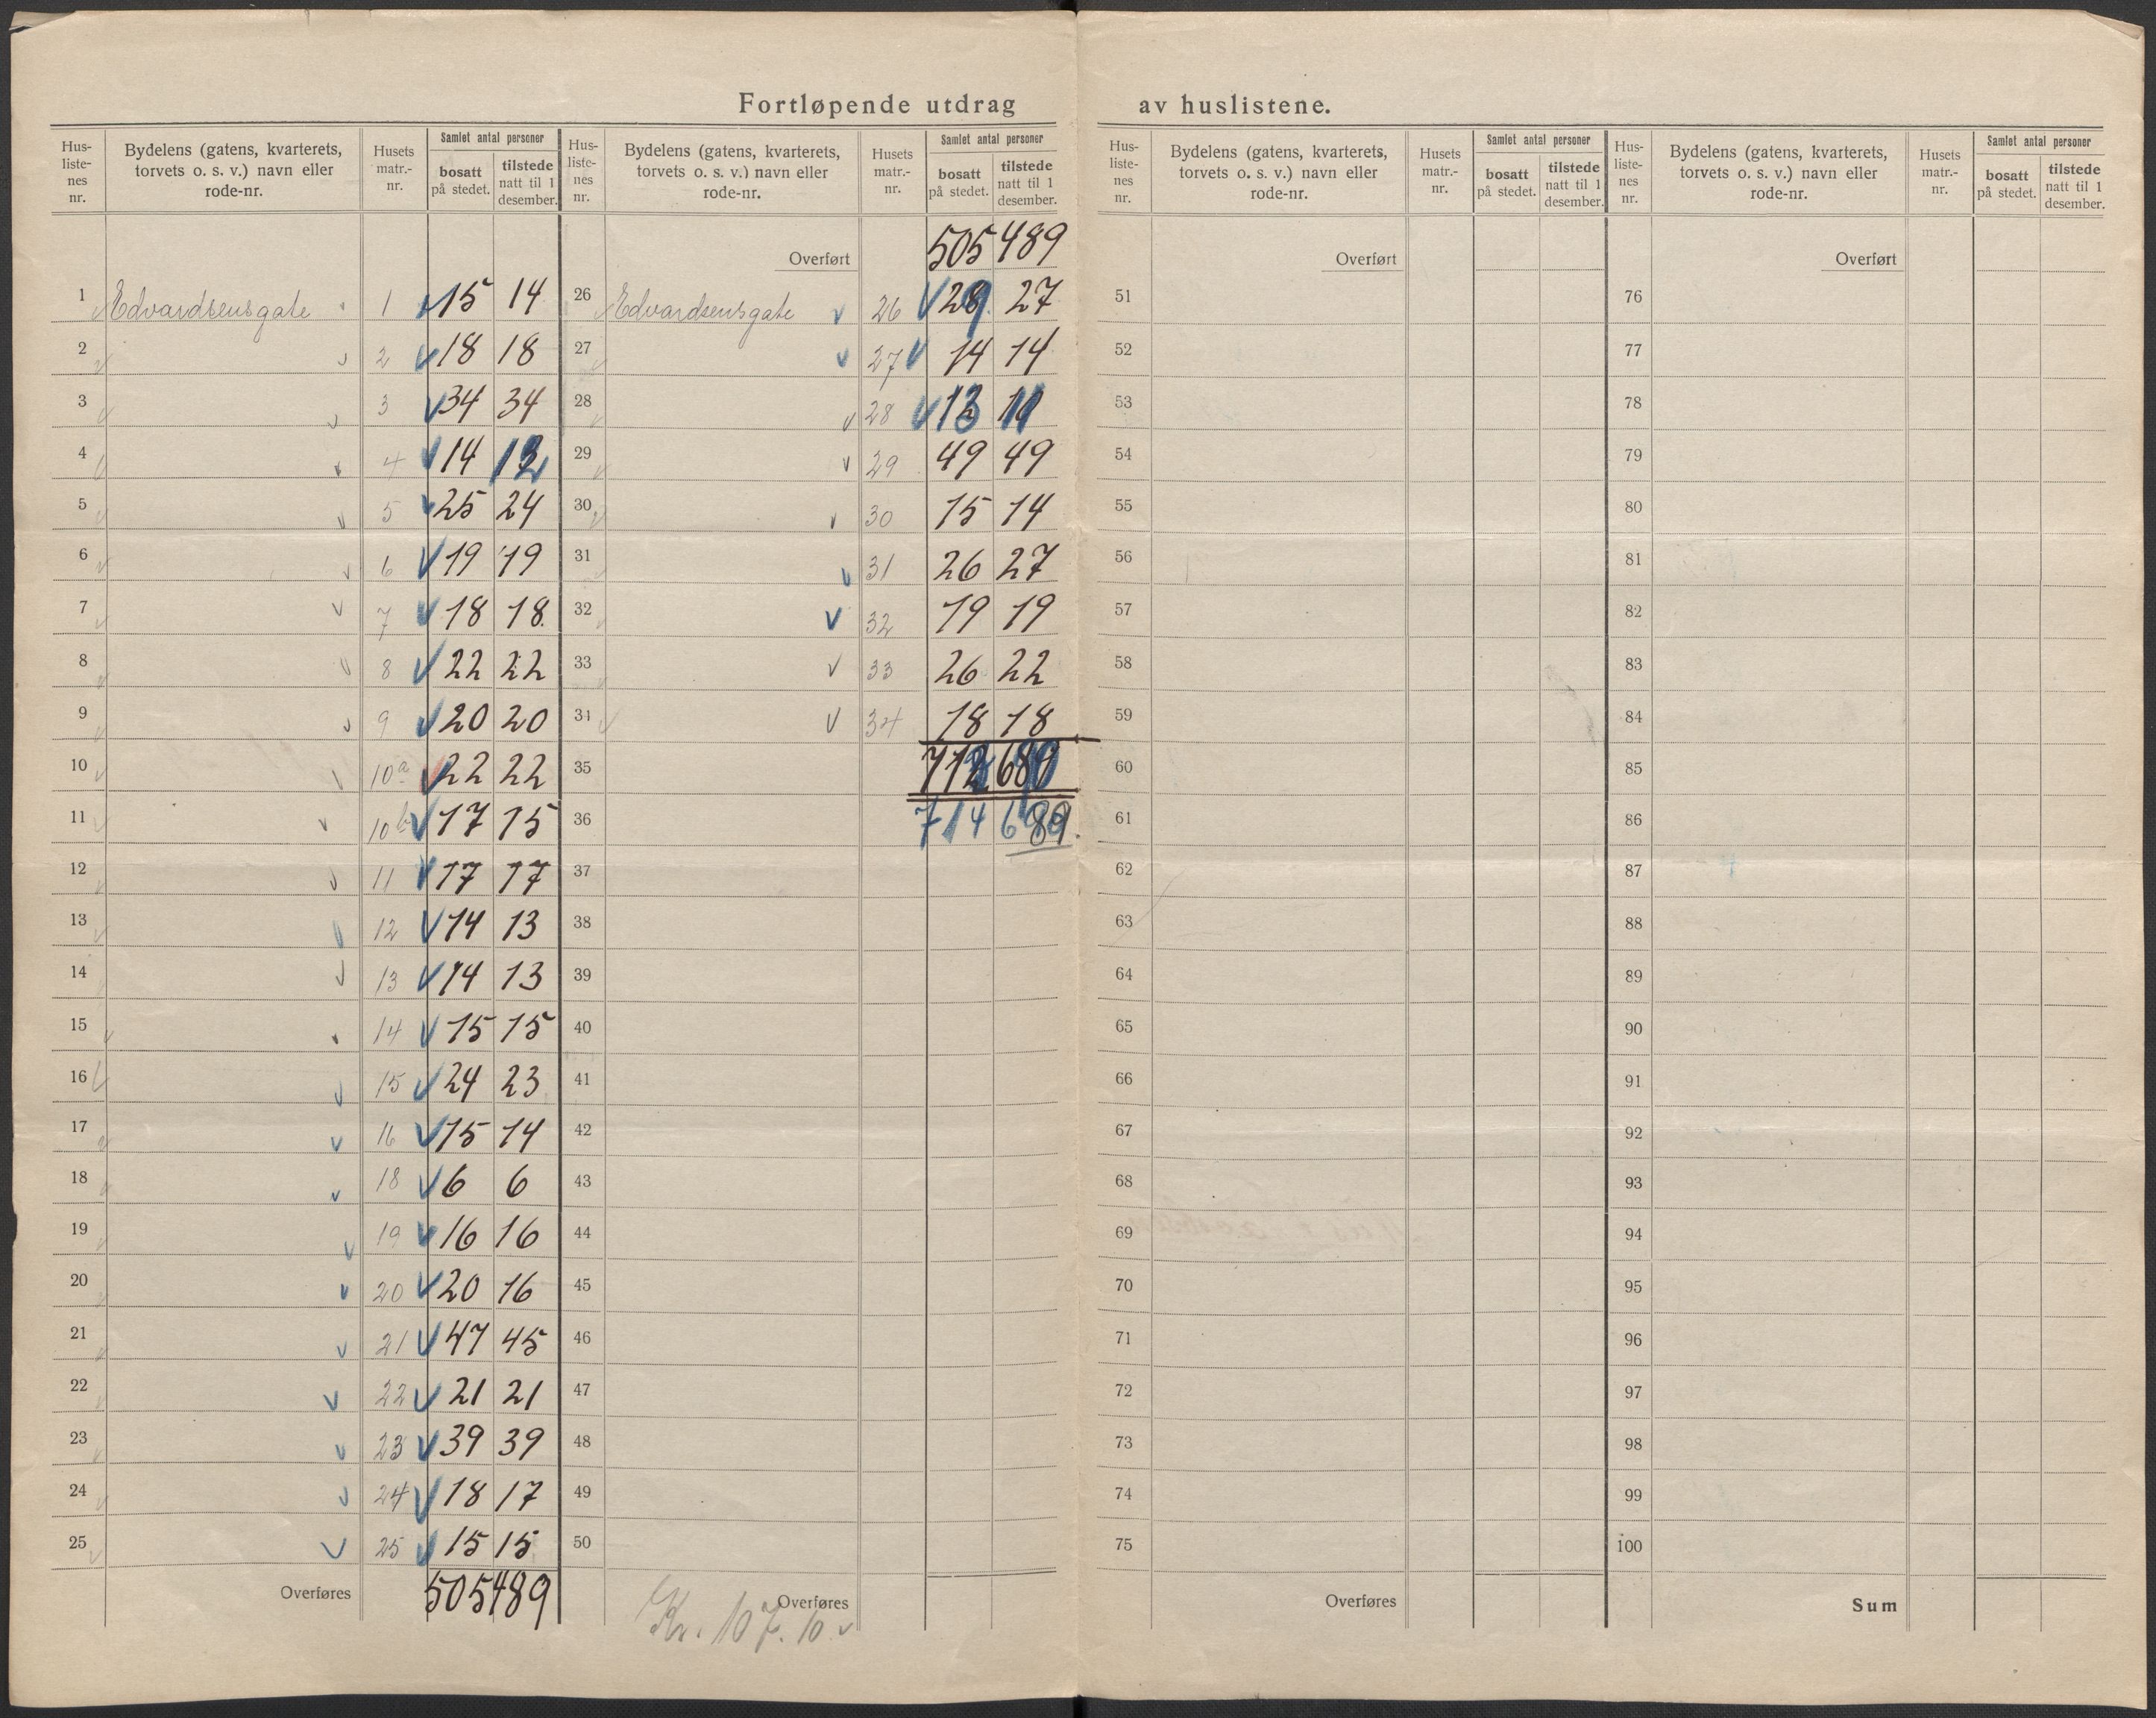 Fortløpende utdrag av huslistene.
Hus-liste-nes nr. | Bydelens (gatens, kvarterets, torvets o. s. v.) navn eller rode-nr. | Husets matr.-nr. | Samlet antal personer bosatt på stedet. | tilstede natt til 1 desember.
1 Edvardsensgate 1 15 14
2 2 18 18
3 3 34 34
4 4 14 12
5 5 25 24
6 6 19 19
7 7 18 18.
8 8 22 22
9 9 20 20
10 10a 22 22
11 10b 17 15
12 11 17 17
13 12 14 13
14 13 14 13
15 14 15 15
16 15 24 23
17 16 15 14
18 18 6 6
19 19 16 16
20 20 20 16
21 21 47 45
22 22 21 21
23 23 39 39
24 24 18 17
25 25 15 15
Overføres 505 489
Hus-liste-nes nr. | Bydelens (gatens, kvarterets, torvets o. s. v.) navn eller rode-nr. | Husets matr.-nr. | Samlet antal personer bosatt på stedet. | tilstede natt til 1 desember.
Overført 505 489
26 Edvardsensgate 26 29 27
27 27 14 14
28 28 13 11
29 29 49 49
30 30 15 14
31 31 26 27
32 32 19 19
33 33 26 22
34 34 18 18
35 712 689
36 714 689.
37
38
39
40
41
42
43
44
45
46
47
48
49
50
Overføres
Kr. 107.10
Hus-liste-nes nr. | Bydelens (gatens, kvarterets, torvets o. s. v.) navn eller rode-nr. | Husets matr.-nr. | Samlet antal personer bosatt på stedet. | tilstede natt til 1 desember.
Overført
51
52
53
54
55
56
57
58
59
60
61
62
63
64
65
66
67
68
69
70
71
72
73
74
75
Overføres
Hus-liste-nes nr. | Bydelens (gatens, kvarterets, torvets o. s. v.) navn eller rode-nr. | Husets matr.-nr. | Samlet antal personer bosatt på stedet. | tilstede natt til 1 desember.
Overført
76
77
78
79
80
81
82
83
84
85
86
87
88
89
90
91
92
93
94
95
96
97
98
99
100
Sum